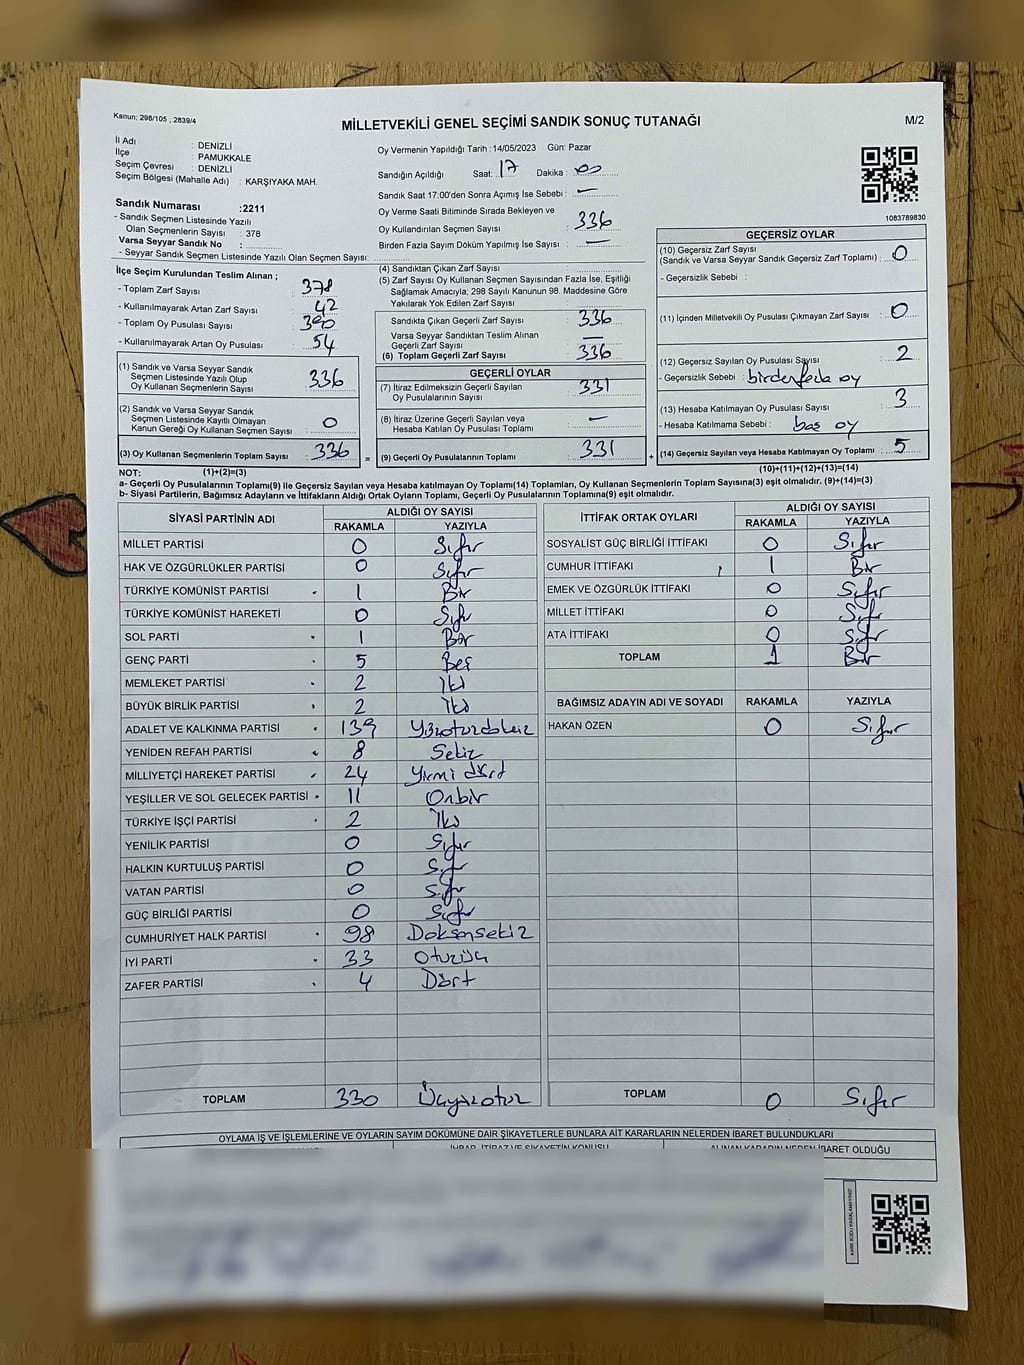 Kanun; 298/105 , 2839/4
MİLLETVEKİLİ GENEL SEÇİMİ SANDIK SONUÇ TUTANAĞI
M/2
İl Adı : DENİZLİ
İlçe : PAMUKKALE
Seçim Çevresi : DENİZLİ
Seçim Bölgesi (Mahalle Adı) : KARŞIYAKA MAH.
Sandık Numarası :2211
- Sandık Seçmen Listesinde Yazılı
Olan Seçmenlerin Sayısı : 378
Varsa Seyyar Sandık No :
- Seyyar Sandık Seçmen Listesinde Yazılı Olan Seçmen Sayısı:
Oy Vermenin Yapıldığı Tarih :14/05/2023 Gün: Pazar
Sandığın Açıldığı Saat: 17 Dakika : 00
Sandık Saat 17:00'den Sonra Açımış İse Sebebi : —
Oy Verme Saati Bitiminde Sırada Bekleyen ve
Oy Kullandırılan Seçmen Sayısı : 336
Birden Fazla Sayım Döküm Yapılmış İse Sayısı : —
1083789830
İlçe Seçim Kurulundan Teslim Alınan ;
- Toplam Zarf Sayısı : 378
- Kullanılmayarak Artan Zarf Sayısı : 42
- Toplam Oy Pusulası Sayısı : 390
- Kullanılmayarak Artan Oy Pusulası : 54
(1) Sandık ve Varsa Seyyar Sandık
Seçmen Listesinde Yazılı Olup
Oy Kullanan Seçmenlerin Sayısı : 336
(2) Sandık ve Varsa Seyyar Sandık
Seçmen Listesinde Kayıtlı Olmayan
Kanun Gereği Oy Kullanan Seçmen Sayısı : 0
(3) Oy Kullanan Seçmenlerin Toplam Sayısı : 336
(4) Sandıktan Çıkan Zarf Sayısı :
(5) Zarf Sayısı Oy Kullanan Seçmen Sayısından Fazla İse, Eşitliği
Sağlamak Amacıyla; 298 Sayılı Kanunun 98. Maddesine Göre
Yakılarak Yok Edilen Zarf Sayısı :
Sandıkta Çıkan Geçerli Zarf Sayısı : 336
Varsa Seyyar Sandıktan Teslim Alınan
Geçerli Zarf Sayısı : —
(6) Toplam Geçerli Zarf Sayısı : 336
GEÇERLİ OYLAR
(7) İtiraz Edilmeksizin Geçerli Sayılan
Oy Pusulalarının Sayısı : 331
(8) İtiraz Üzerine Geçerli Sayılan veya
Hesaba Katılan Oy Pusulası Toplamı : —
= (9) Geçerli Oy Pusulalarının Toplamı : 331
GEÇERSİZ OYLAR
(10) Geçersiz Zarf Sayısı
(Sandık ve Varsa Seyyar Sandık Geçersiz Zarf Toplamı) : 0
- Geçersizlik Sebebi :
(11) İçinden Milletvekili Oy Pusulası Çıkmayan Zarf Sayısı : 0
(12) Geçersiz Sayılan Oy Pusulası Sayısı : 2
- Geçersizlik Sebebi : birdenfazla oy
(13) Hesaba Katılmayan Oy Pusulası Sayısı : 3
- Hesaba Katılmama Sebebi : boş oy
+ (14) Geçersiz Sayılan veya Hesaba Katılmayan Oy Toplamı : 5
NOT: (1)+(2)=(3)
(10)+(11)+(12)+(13)=(14)
a- Geçerli Oy Pusulalarının Toplamı(9) ile Geçersiz Sayılan veya Hesaba katılmayan Oy Toplamı(14) Toplamları, Oy Kullanan Seçmenlerin Toplam Sayısına(3) eşit olmalıdır. (9)+(14)=(3)
b- Siyasi Partilerin, Bağımsız Adayların ve İttifakların Aldığı Ortak Oyların Toplamı, Geçerli Oy Pusulalarının Toplamına(9) eşit olmalıdır.
SİYASİ PARTİNİN ADI ALDIĞI OY SAYISI
RAKAMLA YAZIYLA
MİLLET PARTİSİ 0 Sıfır
HAK VE ÖZGÜRLÜKLER PARTİSİ 0 Sıfır
TÜRKİYE KOMÜNİST PARTİSİ 1 Bir
TÜRKİYE KOMÜNİST HAREKETİ 0 Sıfır
SOL PARTİ 1 Bir
GENÇ PARTİ 5 Beş
MEMLEKET PARTİSİ 2 İki
BÜYÜK BİRLİK PARTİSİ 2 İki
ADALET VE KALKINMA PARTİSİ 139 Yüzotuzdokuz
YENİDEN REFAH PARTİSİ 8 Sekiz
MİLLİYETÇİ HAREKET PARTİSİ 24 Yirmi dört
YEŞİLLER VE SOL GELECEK PARTİSİ 11 Onbir
TÜRKİYE İŞÇİ PARTİSİ 2 İki
YENİLİK PARTİSİ 0 Sıfır
HALKIN KURTULUŞ PARTİSİ 0 Sıfır
VATAN PARTİSİ 0 Sıfır
GÜÇ BİRLİĞİ PARTİSİ 0 Sıfır
CUMHURİYET HALK PARTİSİ 98 Doksansekiz
İYİ PARTİ 33 Otuzüç
ZAFER PARTİSİ 4 Dört
TOPLAM 330 Üçyüzotuz
İTTİFAK ORTAK OYLARI ALDIĞI OY SAYISI
RAKAMLA YAZIYLA
SOSYALİST GÜÇ BİRLİĞİ İTTİFAKI 0 Sıfır
CUMHUR İTTİFAKI 1 Bir
EMEK VE ÖZGÜRLÜK İTTİFAKI 0 Sıfır
MİLLET İTTİFAKI 0 Sıfır
ATA İTTİFAKI 0 Sıfır
TOPLAM 1 Bir
BAĞIMSIZ ADAYIN ADI VE SOYADI RAKAMLA YAZIYLA
HAKAN ÖZEN 0 Sıfır
TOPLAM 0 Sıfır
OYLAMA İŞ VE İŞLEMLERİNE VE OYLARIN SAYIM DÖKÜMÜNE DAİR ŞİKAYETLERLE BUNLARA AİT KARARLARIN NELERDEN İBARET BULUNDUKLARI
İHBAR, İTİRAZ VE ŞİKAYETİN KONUSU
ALINAN KARARIN NEDEN İBARET OLDUĞU
KARE KODU KARALAMAYINIZ!